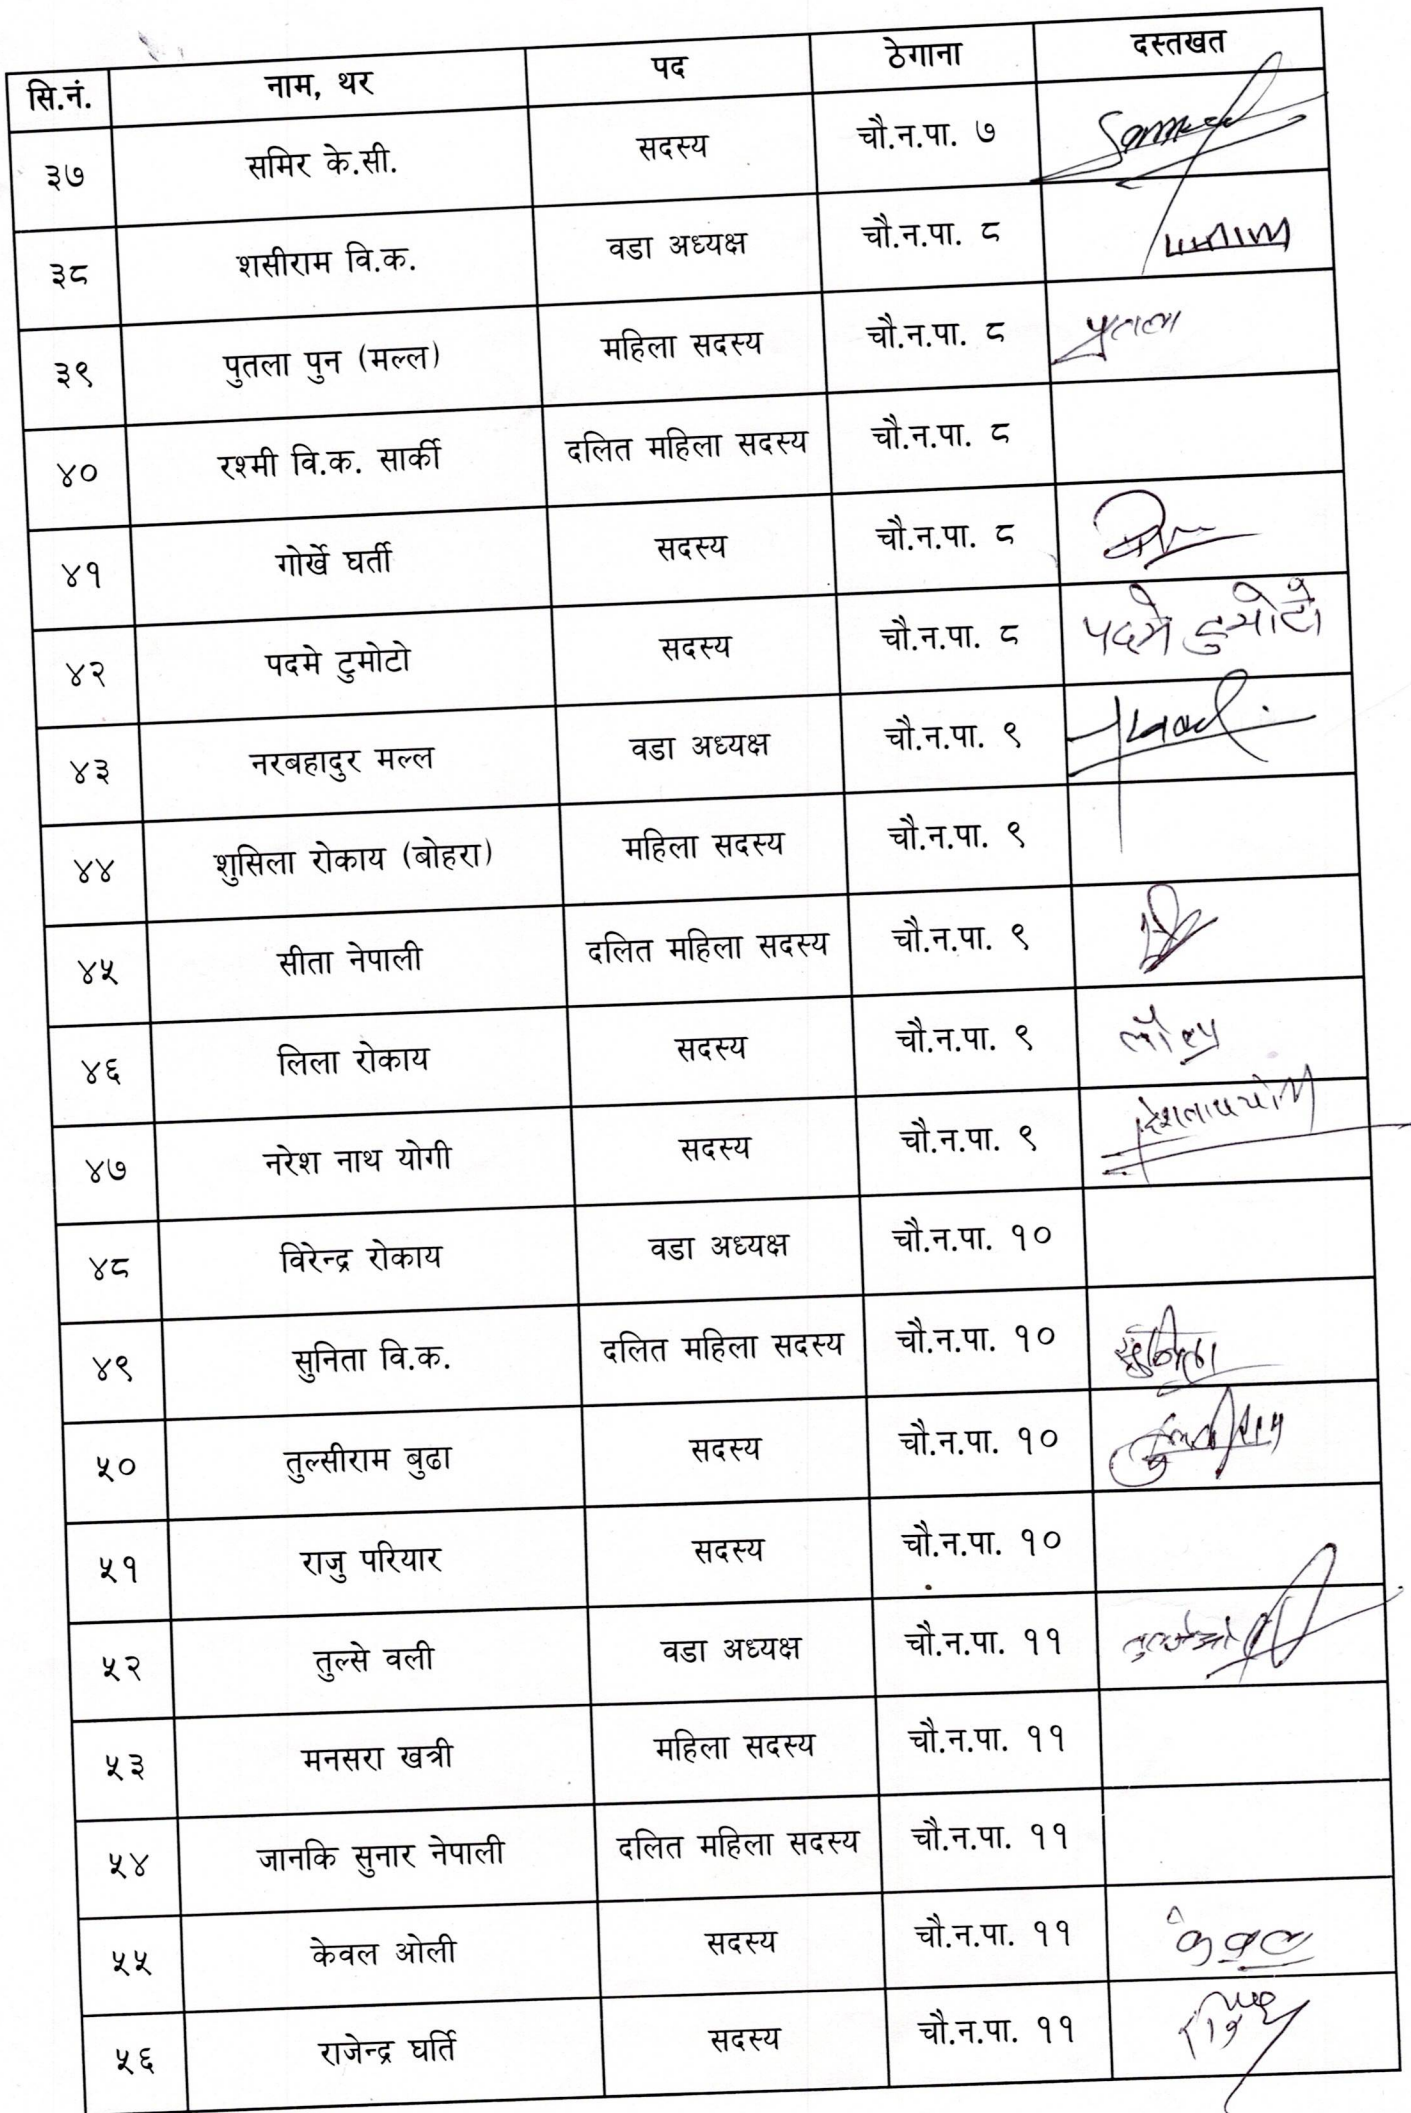 सि.नं. नाम, थर पद ठेगाना दस्तखत
३७ समिर के.सी. सदस्य चौ.न.पा. ७
३८ शसीराम वि.क. वडा अध्यक्ष चौ.न.पा. ८
३९ पुतला पुन (मल्ल) महिला सदस्य चौ.न.पा. ८ पुतला
४० रश्मी वि.क. सार्की दलित महिला सदस्य चौ.न.पा. ८
४१ गोर्खे घर्ती सदस्य चौ.न.पा. ८
४२ पदमे टुमोटो सदस्य चौ.न.पा. ८
४३ नरबहादुर मल्ल वडा अध्यक्ष चौ.न.पा. ९
४४ शुसिला रोकाय (बोहरा) महिला सदस्य चौ.न.पा. ९
४५ सीता नेपाली दलित महिला सदस्य चौ.न.पा. ९
४६ लिला रोकाय सदस्य चौ.न.पा. ९
४७ नरेश नाथ योगी सदस्य चौ.न.पा. ९
४८ विरेन्द्र रोकाय वडा अध्यक्ष चौ.न.पा. १०
४९ सुनिता वि.क. दलित महिला सदस्य चौ.न.पा. १०
५० तुल्सीराम बुढा सदस्य चौ.न.पा. १०
५१ राजु परियार सदस्य चौ.न.पा. १०
५२ तुल्से वली वडा अध्यक्ष चौ.न.पा. ११
५३ मनसरा खत्री महिला सदस्य चौ.न.पा. ११
५४ जानकि सुनार नेपाली दलित महिला सदस्य चौ.न.पा. ११
५५ केवल ओली सदस्य चौ.न.पा. ११ केवल
५६ राजेन्द्र घर्ति सदस्य चौ.न.पा. ११